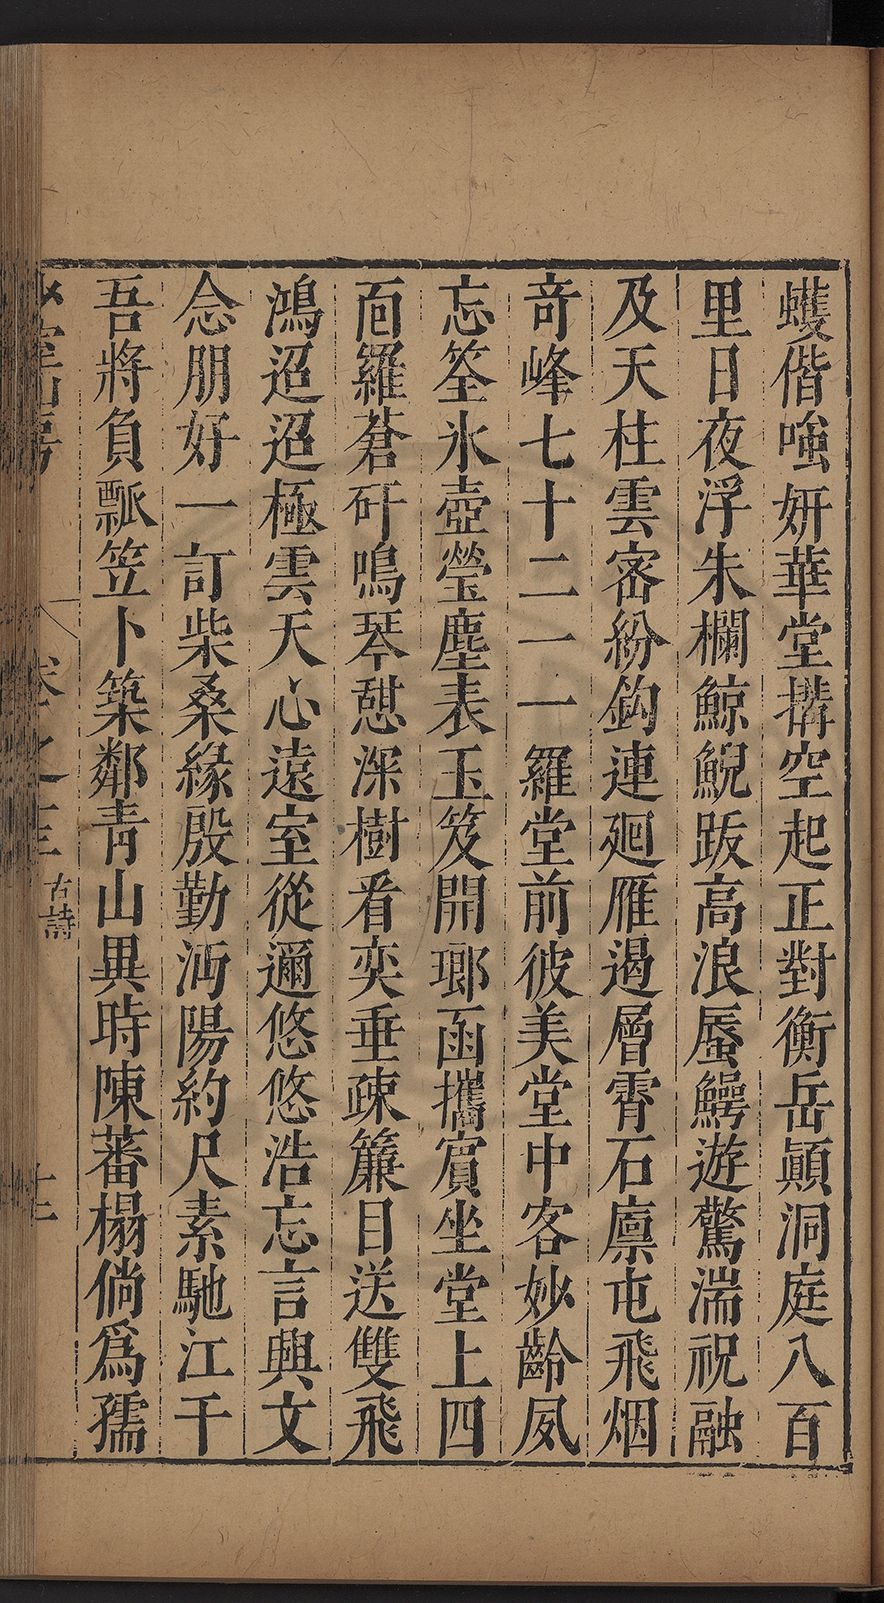 蠖偕嗤妍華堂搆空起正對衡岳顚洞庭八百
里日夜浮朱欄鯨鯢跋高浪蜃鱷遊驚湍祝融
及天柱雲密紛鈎連廻雁遏層霄石廩屯飛烟
竒峰七十二一一羅堂前彼美堂中客妙齡夙
忘筌氷壺瑩塵表玉笈開瑯函攜賓坐堂上四
面羅蒼矸鳴琴憇深樹看奕垂疎簾目送雙飛
鴻迢迢極雲天心遠室從邇悠悠浩忘言與文
念朋好一訂柴桑緣殷勤沔陽約尺素馳江干
吾將負瓢笠卜築鄰青山異時陳蕃榻倘爲孺
少室山房 卷之三 古詩 十三